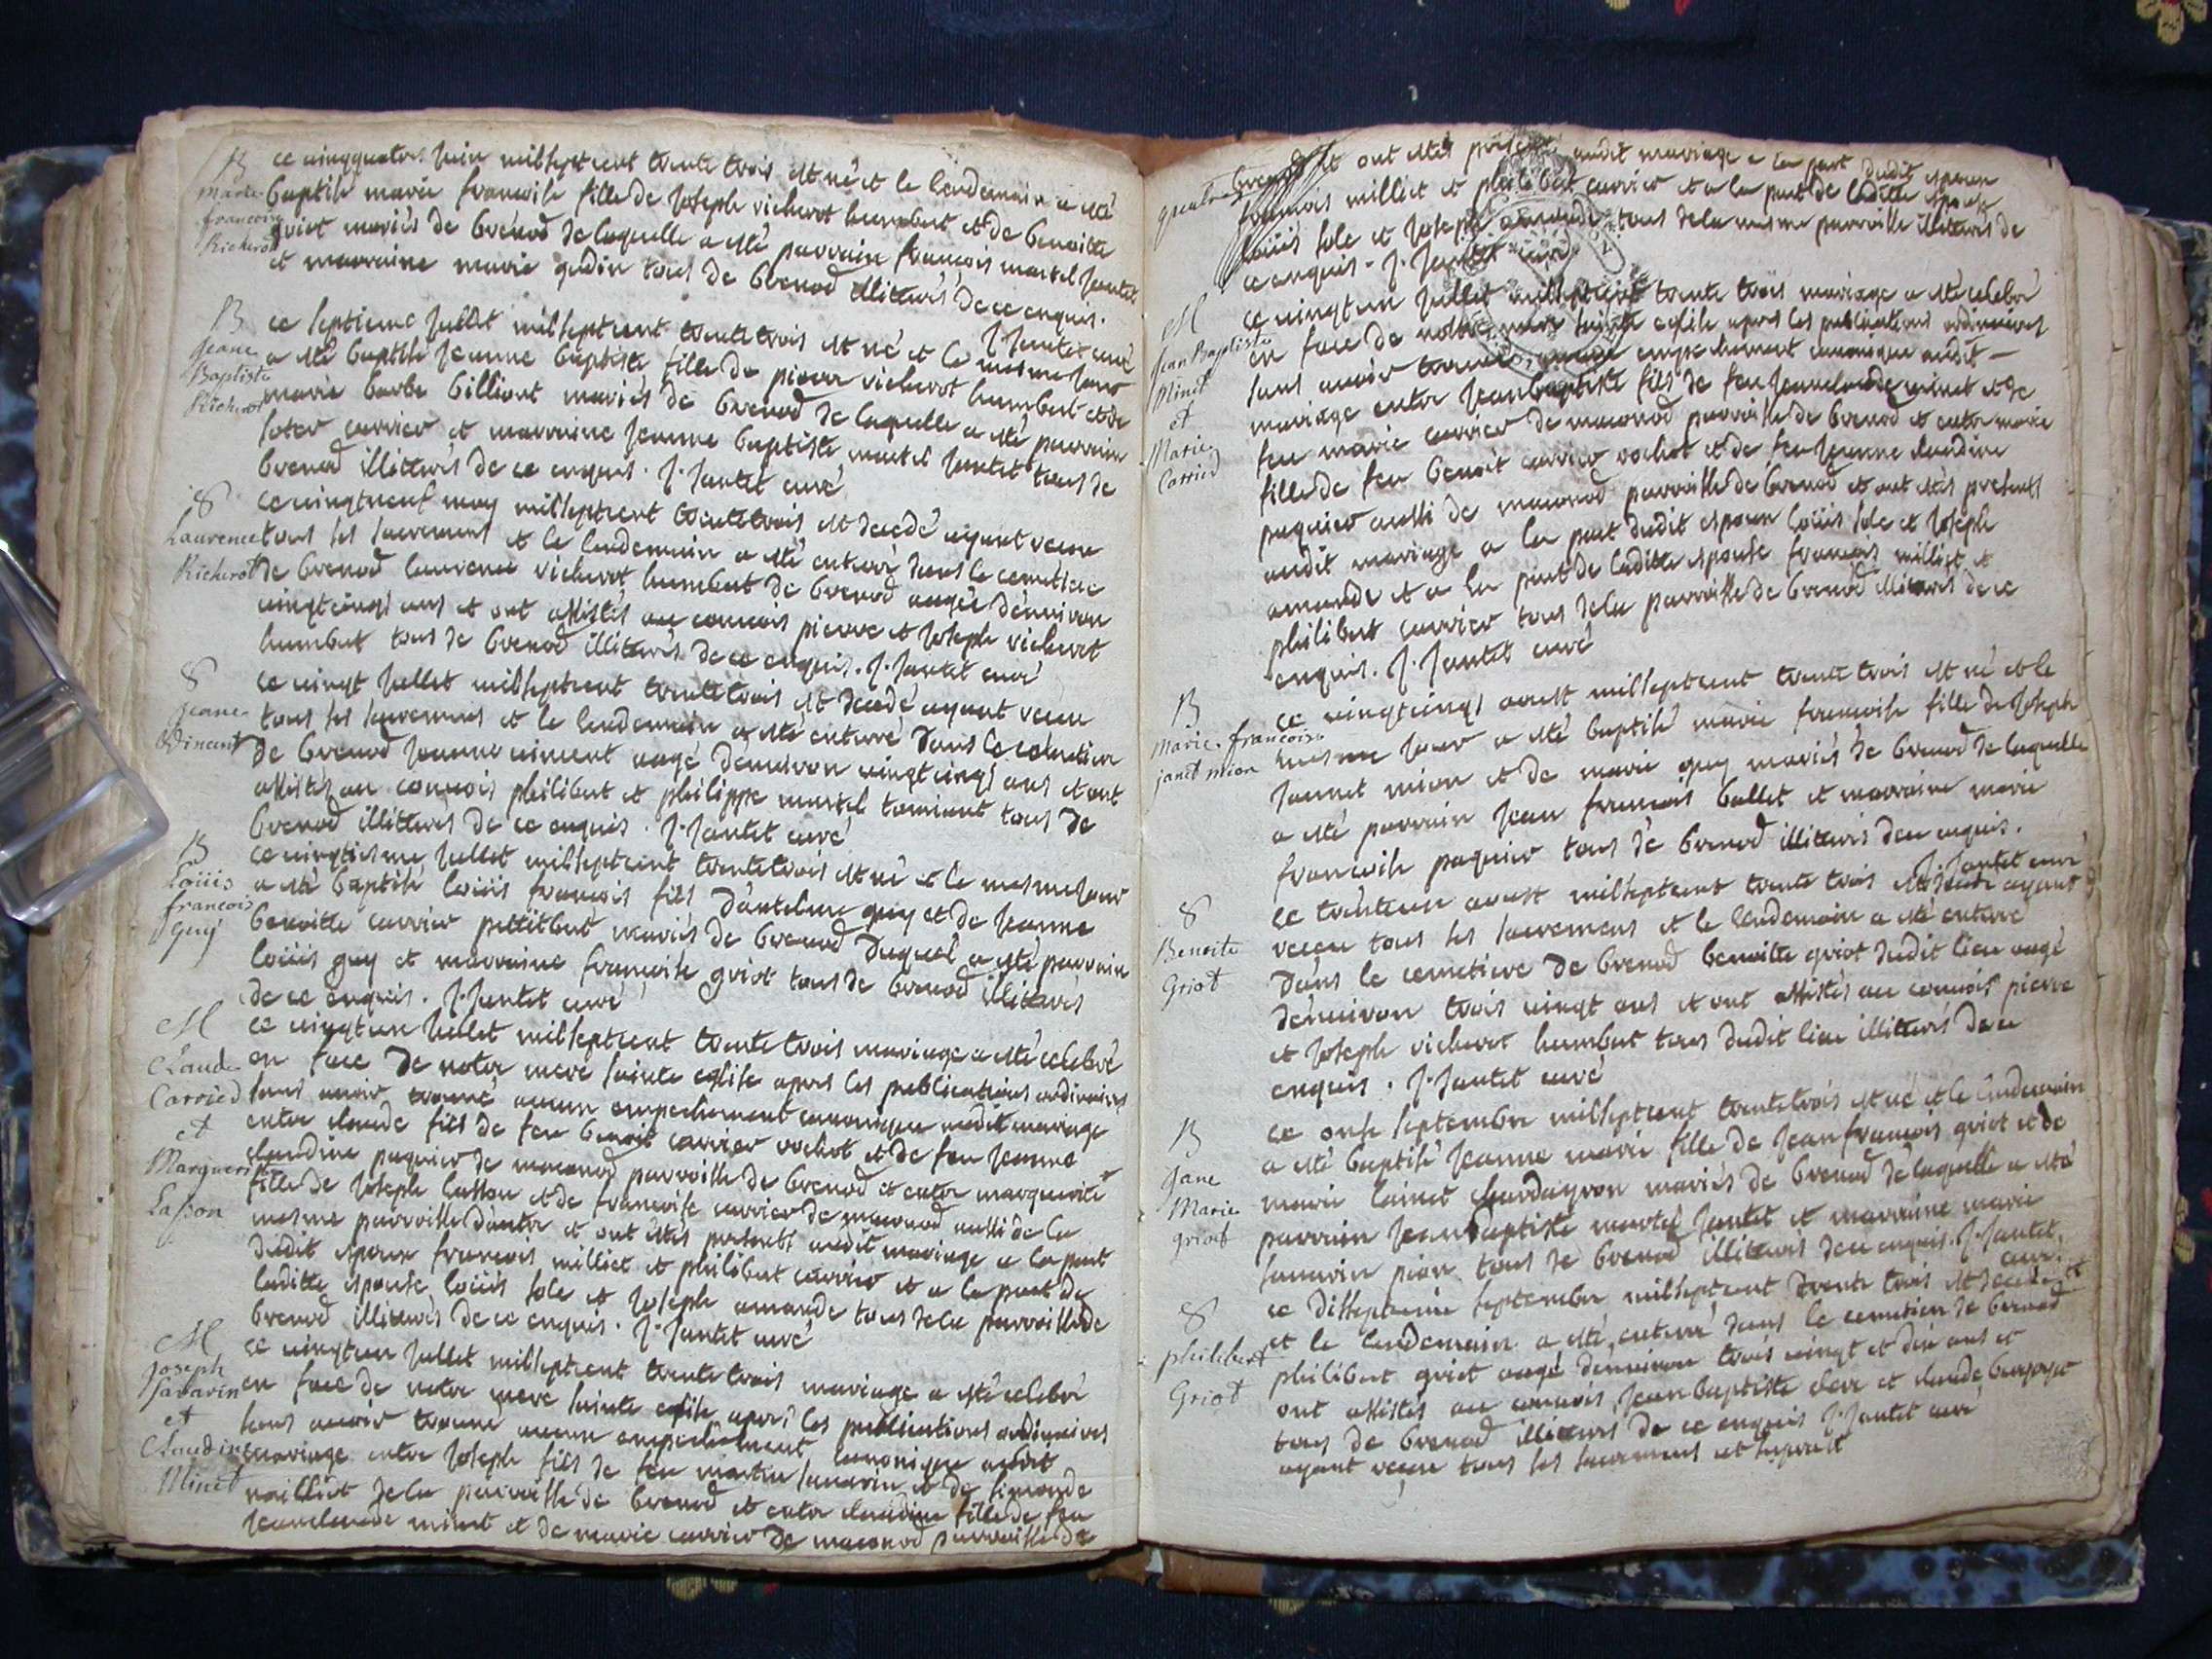 B
Marie
francoise
Richerot
ce vingquatre Juin milseptcent trente trois est né et le lendemain a esté
baptisé marie francoise fille de Joseph richerot humbert et de benoitte
griot mariés de brenod de laquelle a esté parrain francois martel Jantet
et marraine marie gudin tous de brenod illitterés de ce enquis.
J. Jantet curé
B
Jeane
Baptiste
Richerot
ce septieme Jullet milseptcent trente trois est né et le mesme Jour
a esté baptisé Jeanne baptiste fille de pierre richerot humbert et de
marie barbe billient mariés de brenod de laquelle a esté parrain
carrier et marraine Jeanne baptiste martel Jantet tous de
brenod illitterés de ce enquis. J. Jantet curé
8
Laurence
Richerot
ce vingtneuf may milseptcent trente trois est decedé ayant receu
tous ses sacremens et le lendemain a esté enterré dans le cemetiere
de brenod laurence richerot humbert de brenod aagée denviron
vingtcinq ans et ont assistés au convois pierre et Joseph richerot
humbert tous de brenod illitterés de ce enquis. J. Jantet curé
8
Jeane
vincent
ce vingt Jullet milseptcent trente trois est decedé ayant receu
tous ses sacremens et le lendemain a esté enterré dans le cemetiere
de brenod Jeanne vincent aagé denviron vingtcinq ans et ont
assistés au convois philibert et philippe martel tous de
brenod illitterés de ce enquis. J. Jantet curé
B
Loüis
francois
Guy
ce vingtiesme Jullet milseptcent trente trois est né et le mesme Jour
a esté baptisé loüis francois fils d'antelme guy et de Jeanne
benoitte carrier pettitbert mariés de brenod duquel a esté parrain
loüis guy et marraine francoise griot tous de brenod illitterés
de ce enquis. J. Jantet curé
M
Claude
Carried
et
Marguerite
Lasson
ce vingtun Jullet milseptcent trente trois mariage a esté celebré
en face de notre mere sainte eglise apres les publications ordinaires
sans avoir trouvé aucun empechement canonique audit mariage
entre claude fils de feu benoit carrier rochot et de feu Jeanne
claudine paquier de maconod parroisse de brenod et entre marguerite
fille de Joseph lasson et de francoise carrier de maconod aussi de la
mesme parroisse d'autre et ont estés presents audit mariage a la part
dudit espoux francois milliet et philibert carrier et a la part de
laditte espouse loüis sole et Joseph amande tous de la parroisse de
brenod illitterés de ce enquis. J. Jantet curé
M
Joseph
Savarin
et
Claudine
Minet
ce vingtun Jullet milseptcent trente trois mariage a esté celebré
en face de notre mere sainte eglise apres les publications ordinaires
sans avoir trouvé aucun empechement canonique audit
mariage entre Joseph fils de feu martin savarin et de simonde
de la parroisse de brenod et entre claudine fille de feu
Jeanclaude minet et de marie carrier de maconod parroisse de
brenod et ont estés presents audit mariage a la part dudit espoux
francois milliet et philibert carrier et a la part de laditte espouse
loüis sole et Joseph amande tous de la mesme parroisse illitterés de
ce enquis. J. Jantet curé
M
Jean Baptiste
Minet
et
Marie
Carried
ce vingtun Jullet milseptcent trente trois mariage a esté celebré
en face de nottre mere sainte eglise apres les publications ordinaires
sans avoir trouvé aucun empechement canonique audit
mariage entre Jeanbaptiste fils de feu Jeanclaude minet et de
feu marie carrier de maconod parroisse de brenod et entre marie
fille de feu benoit carrier rochot et de feu Jeanne claudine
paquier aussi de maconod parroisse de brenod et ont estés presents
audit mariage a la part dudit espoux loüis sole et Joseph
amande et a la part de laditte espouse francois milliet et
philibert carrier tous de la parroisse de brenod illitterés de ce
enquis. J. Jantet curé
B
Marie francoise
janet mion
ce vingtcinq aoust milseptcent trente trois est né et le
mesme Jour a esté baptisé marie francoise fille de Joseph
Jannet mion et de marie guy mariés de brenod de laquelle
a esté parrain Jean francois ballet et marraine marie
francoise paquier tous de brenod illitterés de ce enquis.
J. Jantet curé
8
Benoite
Griot
ce trenteun aoust milseptcent trente trois est decedé ayant
receu tous ses sacremens et le lendemain a esté enterré
dans le cemetiere de brenod benoitte griot dudit lieu aagé
denviron trois vingt ans et ont assistés au convois pierre
et Joseph richerot humbert tous dudit lieu illitterés de ce
enquis. J. Jantet curé
B
Jane
Marie
griot
ce onse septembre milseptcent trente trois est né et le lendemain
a esté baptisé Jeanne marie fille de Jeanfrancois griot et de
marie chardeyron mariés de brenod de laquelle a esté
parrain Jeanbaptiste martel Jantet et marraine marie
savarin tous de brenod illitterés de ce enquis. J. Jantet
curé
8
philibert
Griot
ce septembre milseptcent trente trois est decedé
et le lendemain a esté enterré dans le cemetiere de brenod
philibert griot aagé denviron trois vingt et dix ans et
ont assistés au convois Jeanbaptiste et claude
tous de brenod illitterés de ce enquis J. Jantet curé
ayant receu tous ses sacremens